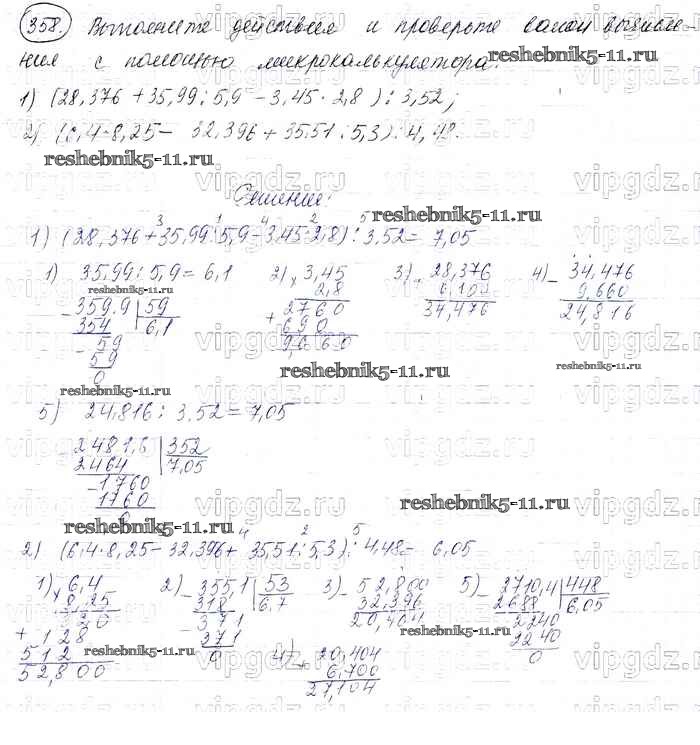 358. Выполните действия и проверьте
ния с помощью микрокалькулятора:
1) (28,376 + 35,99 : 5,9 - 3,45 · 2,8) : 3,52;
2) (6,4 · 8,25 - 32,396 + 35,51 : 5,3) : 4,48.
reshebnik5-11.ru
Решение:
reshebnik5-11.ru
3 1 4 2 5
1) (28,376 + 35,99 : 5,9 - 3,45 · 2,8) : 3,52 = 7,05
1) 35,99 : 5,9 = 6,1 2) × 3,45 3) 28,376 4) - 34,476
reshebnik5-11.ru 2,8 6,100 9,660
- 359,9 59 + 2760 34,476 24,816
354 6,1 690
- 59 9,660
59 reshebnik5-11.ru
0
reshebnik5-11.ru
5) 24,816 : 3,52 = 7,05
- 2481,6 352
2464 7,05
- 1760
1760
0
reshebnik5-11.ru
reshebnik5-11.ru
4 2 5
2) (6,4 · 8,25 - 32,396 + 35,51 : 5,3) : 4,48 = 6,05
1) × 6,4 2) - 355,1 53 3) - 52,800 5) - 2710,4 448
8,25 318 6,7 32,396 2688 6,05
320 - 371 20,404 - 2240
+ 128 371 reshebnik5-11.ru 2240
512 0 4) + 20,404 0
52,800 6,700
reshebnik5-11.ru 27,104
vipgdz.ru